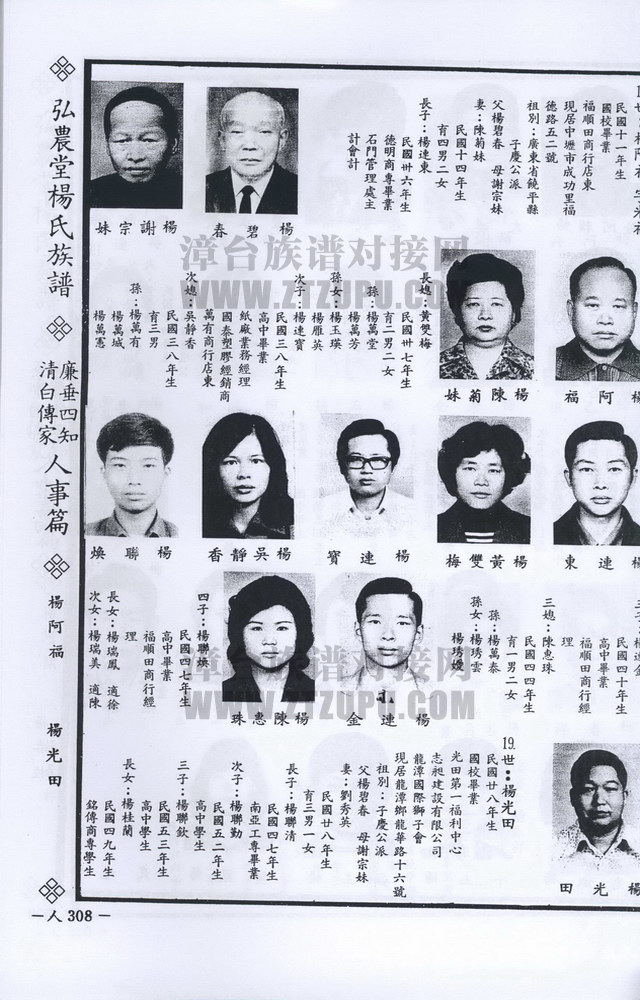 弘農堂楊氏族譜
廉垂四知
清白傳家
人事篇
楊阿福
楊光田
民國十一年生
國校畢業
福順田商行店東
現居中壢市成功里福
德路五二號
祖別：廣東省饒平縣
子慶公派
父楊碧春 母謝宗妹
妻：陳菊妹
民國十四年生
育四男二女
長子：楊連東
民國卅六年生
德明商專畢業
石門管理處主
計會計
楊碧春
楊謝宗妹
長媳：黃雙梅
民國卅七年生
育二男二女
孫：楊萬堂
楊萬芳
孫女：楊玉瑛
楊雁英
次子：楊連寶
民國三八年生
高中畢業
紙廠業務經理
國泰塑膠經銷商
萬有商行店東
次媳：吳靜香
民國三八年生
育三男
孫：楊萬有
楊萬城
楊萬憲
楊阿福
楊陳菊妹
楊連東
楊黃雙梅
楊連寶
楊吳靜香
楊聯煥
民國四十年生
高中畢業
福順田商行經
理
三媳：陳惠珠
民國四四年生
育一男二女
孫：楊萬泰
孫女：楊琇雲
楊琇嬡
楊連金
楊陳惠珠
四子：楊聯煥
民國四七年生
高中畢業
福順田商行經
理
長女：楊瑞鳳 適徐
次女：楊瑞美 適陳
楊光田
19.世：楊光田
民國廿八年生
國校畢業
光田第一福利中心
志昶建設有限公司
龍潭國際獅子會
現居龍潭鄉龍華路十六號
祖別：子慶公派
父楊碧春 母謝宗妹
妻：劉秀英
民國廿八年生
育三男一女
長子：楊聯清
民國四七年生
南亞工專畢業
次子：楊聯勤
民國五二年生
高中學生
三子：楊聯欽
民國五三年生
高中學生
長女：楊桂蘭
民國四九年生
銘傳商專學生
—人 308—
漳台族谱对接网
WWW.ZTZUPU.COM
漳台族谱对接网
WWW.ZTZUPU.COM